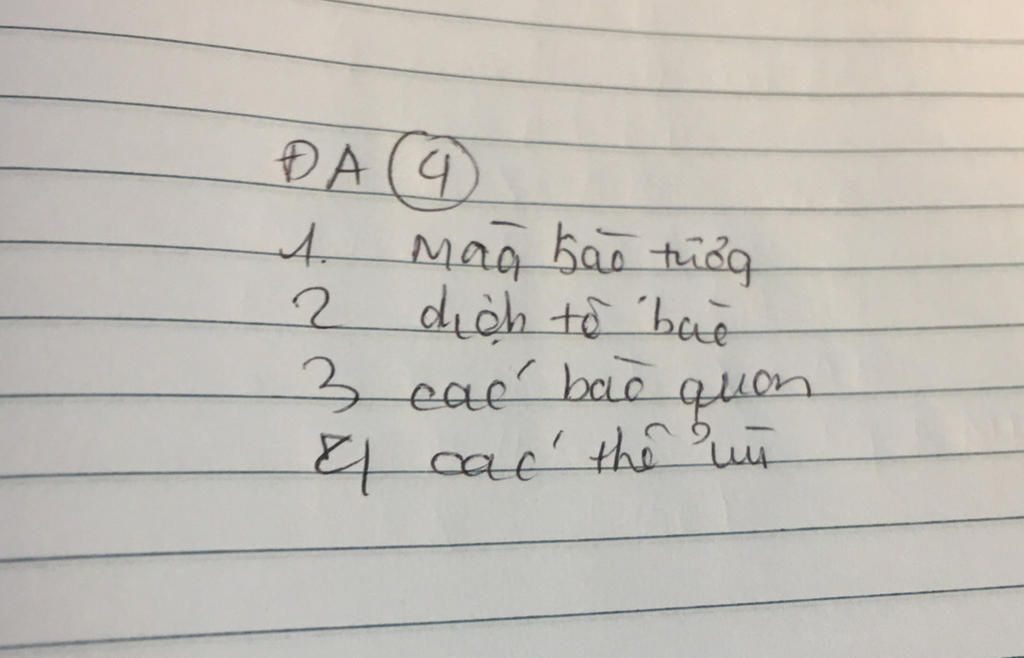 ĐA 4
1. Màng bào tương
2 dịch tế bào
3 các bào quan
4 các thể vùi